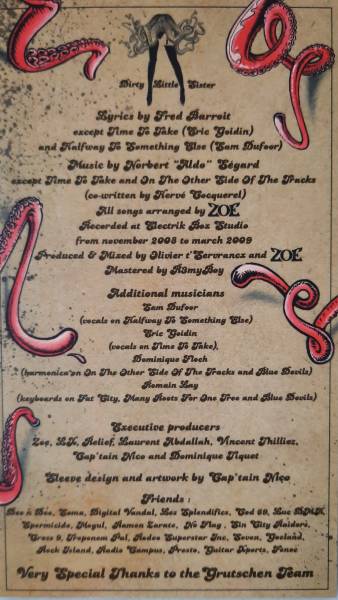 Dirty Little Sister
Lyrics by Fred Barroit
except Time To Take (Eric Goidin)
and Halfway To Something Else (Sam Dufoor)
Music by Norbert "Aldo" Ségard
except Time To Take and On The Other Side Of The Tracks
(co-written by Hervé Cocquerel)
All songs arranged by ZOE
Recorded at Electrik Box Studio
from november 2008 to march 2009
Produced & Mixed by Olivier t'Servrancx and ZOE
Mastered by R3myBoy
Additional musicians
Sam Dufoor
(vocals on Halfway To Something Else)
Eric Goidin
(vocals on Time To Take),
Dominique Floch
(harmonica on On The Other Side Of The Tracks and Blue Devils)
Romain Lay
(keyboards on Fat City, Many Roots For One Tree and Blue Devils)
Executive producers
Zoe, LK, Relief, Laurent Abdallah, Vincent Thilliez,
Cap'tain Nico and Dominique Tiquet
Sleeve design and artwork by Cap'tain Nico
Friends :
Bee n Bee, Coma, Digital Vandal, Les Splendifics, Ced 69, Luc
Spermicide, Mogul, Ramon Zarate, No Flag, Sin City Raiders,
Cross 9, Treponem Pal, Rodeo Superstar Inc, Seven,
Rock Island, Radio Campus, Presto, Guitar Xperts,
Very Special Thanks to the Grutschen Team